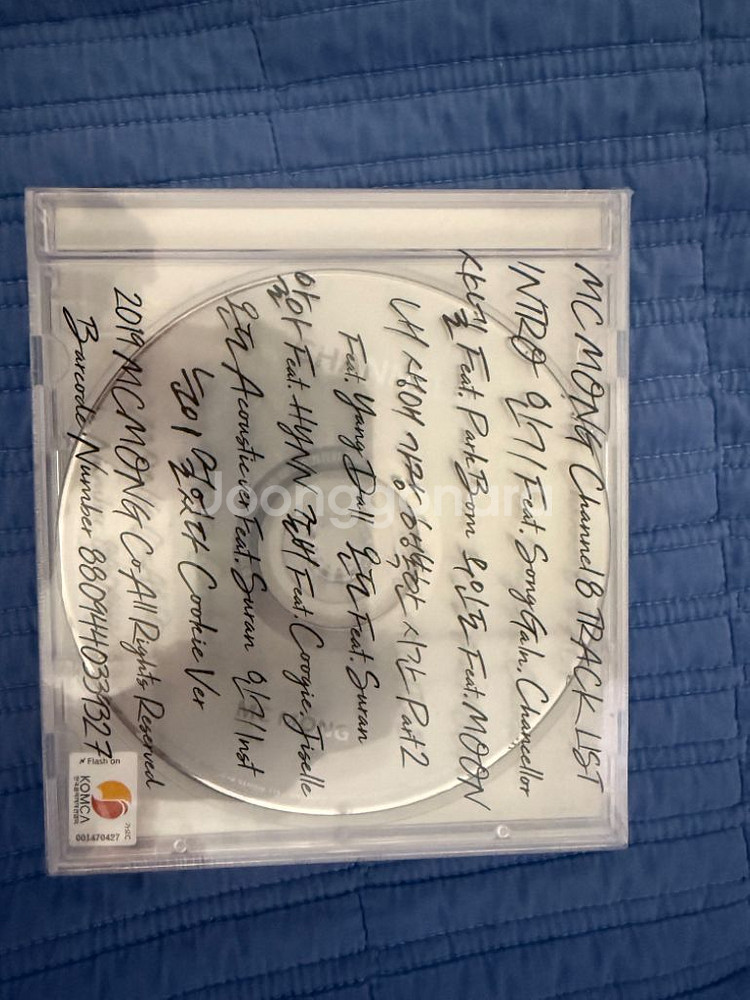 MC MONG Channel 8 TRACK LIST
INTRO 인기 Feat. Song GaIn, Chancellor
샤넬 Feat. Park Bom 무인도 Feat. MOON
내 생애 가장 행복한 시간 Part 2
Feat. Yang Da Il 온도 Feat. Suran
알아 Feat. HYNN Feat. Coogie, Jiselle
온도 Acoustic ver Feat. Suran 인기 Inst
Cookie Ver
2019 MC MONG Co. All Rights Reserved
Barcode Number 8809440339327
Flash on
KOMCA
001470427
Joonggonara